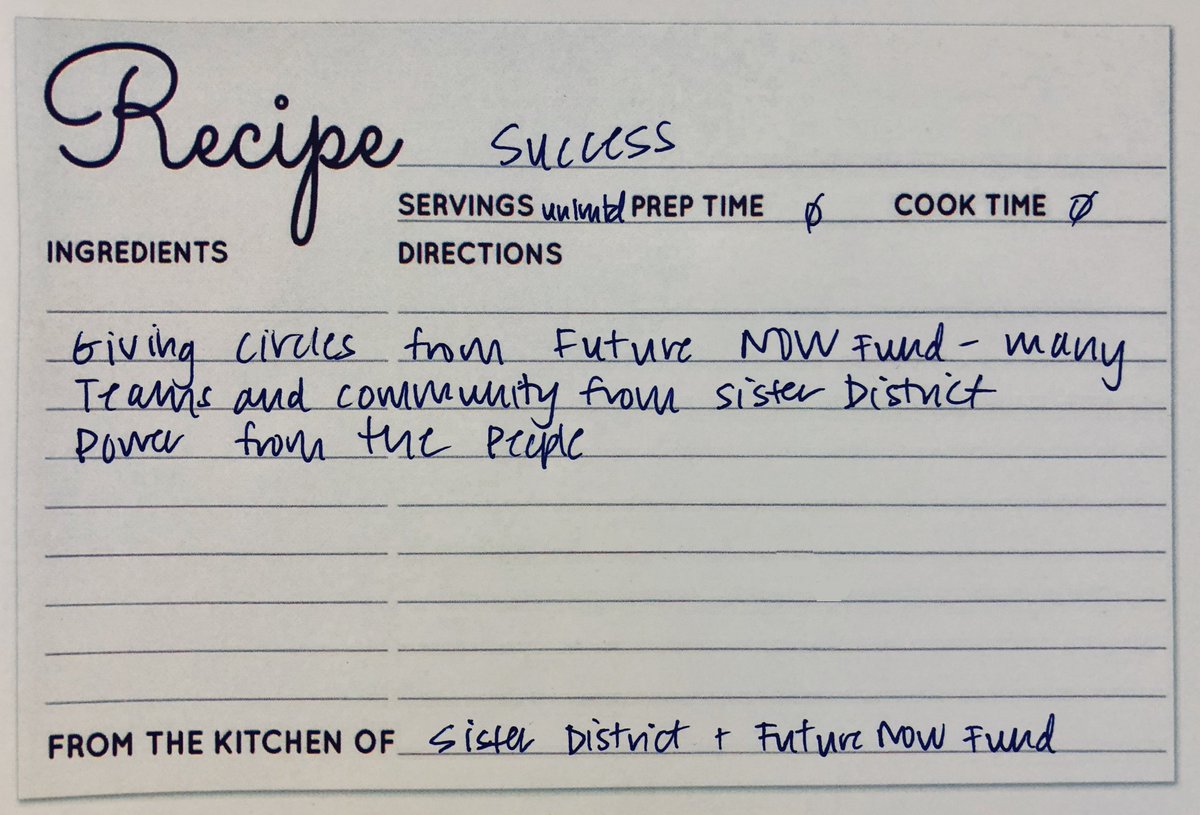 Recipe Success
SERVINGS unlimtd PREP TIME ∅ COOK TIME ∅
INGREDIENTS DIRECTIONS
Giving circles from Future NOW Fund - many
Teams and community from sister District
Power from the People
FROM THE KITCHEN OF Sister District + Future NOW Fund